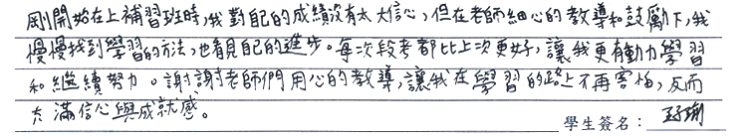 剛開始在上補習班時，我對自己的成績沒有太大信心，但在老師細心的教導和鼓勵下，我
慢慢找到學習的方法，也看見自己的進步。每次段考都比上次更好，讓我更有動力學習
和繼續努力。謝謝老師們用心的教導，讓我在學習的路上不再害怕，反而
充滿信心與成就感。
學生簽名：